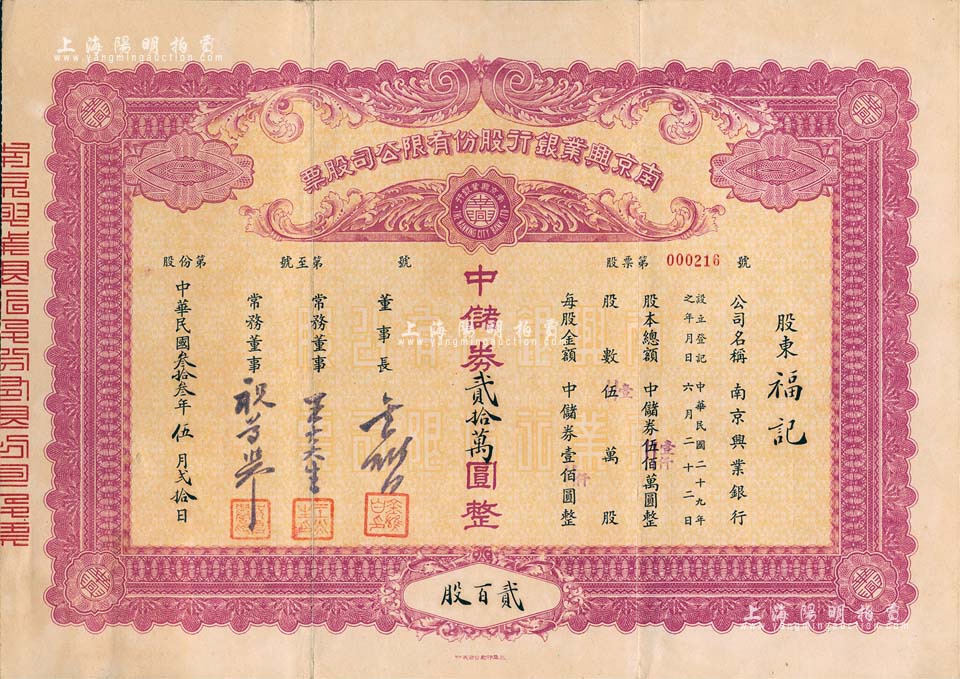 上海陽明拍賣
www.yangmingauction.com
南京興業銀行股份有限公司股票
NANKING CITY BANK
股票第 000216 號
股份第 號至第 號
股東 福記
公司名稱 南京興業銀行
設立登記之年月日 中華民國二十九年六月二十二日
股本總額 中儲券伍佰萬圓整
壹仟
股數 伍萬股
壹
每股金額 中儲券壹佰圓整
仟
中儲券貳拾萬圓整
董事長
常務董事
常務董事
中華民國叁拾叁年伍月弍拾日
貳百股
上海陽明拍賣
www.yangmingauction.com
上海陽明拍賣
www.yangmingauction.com